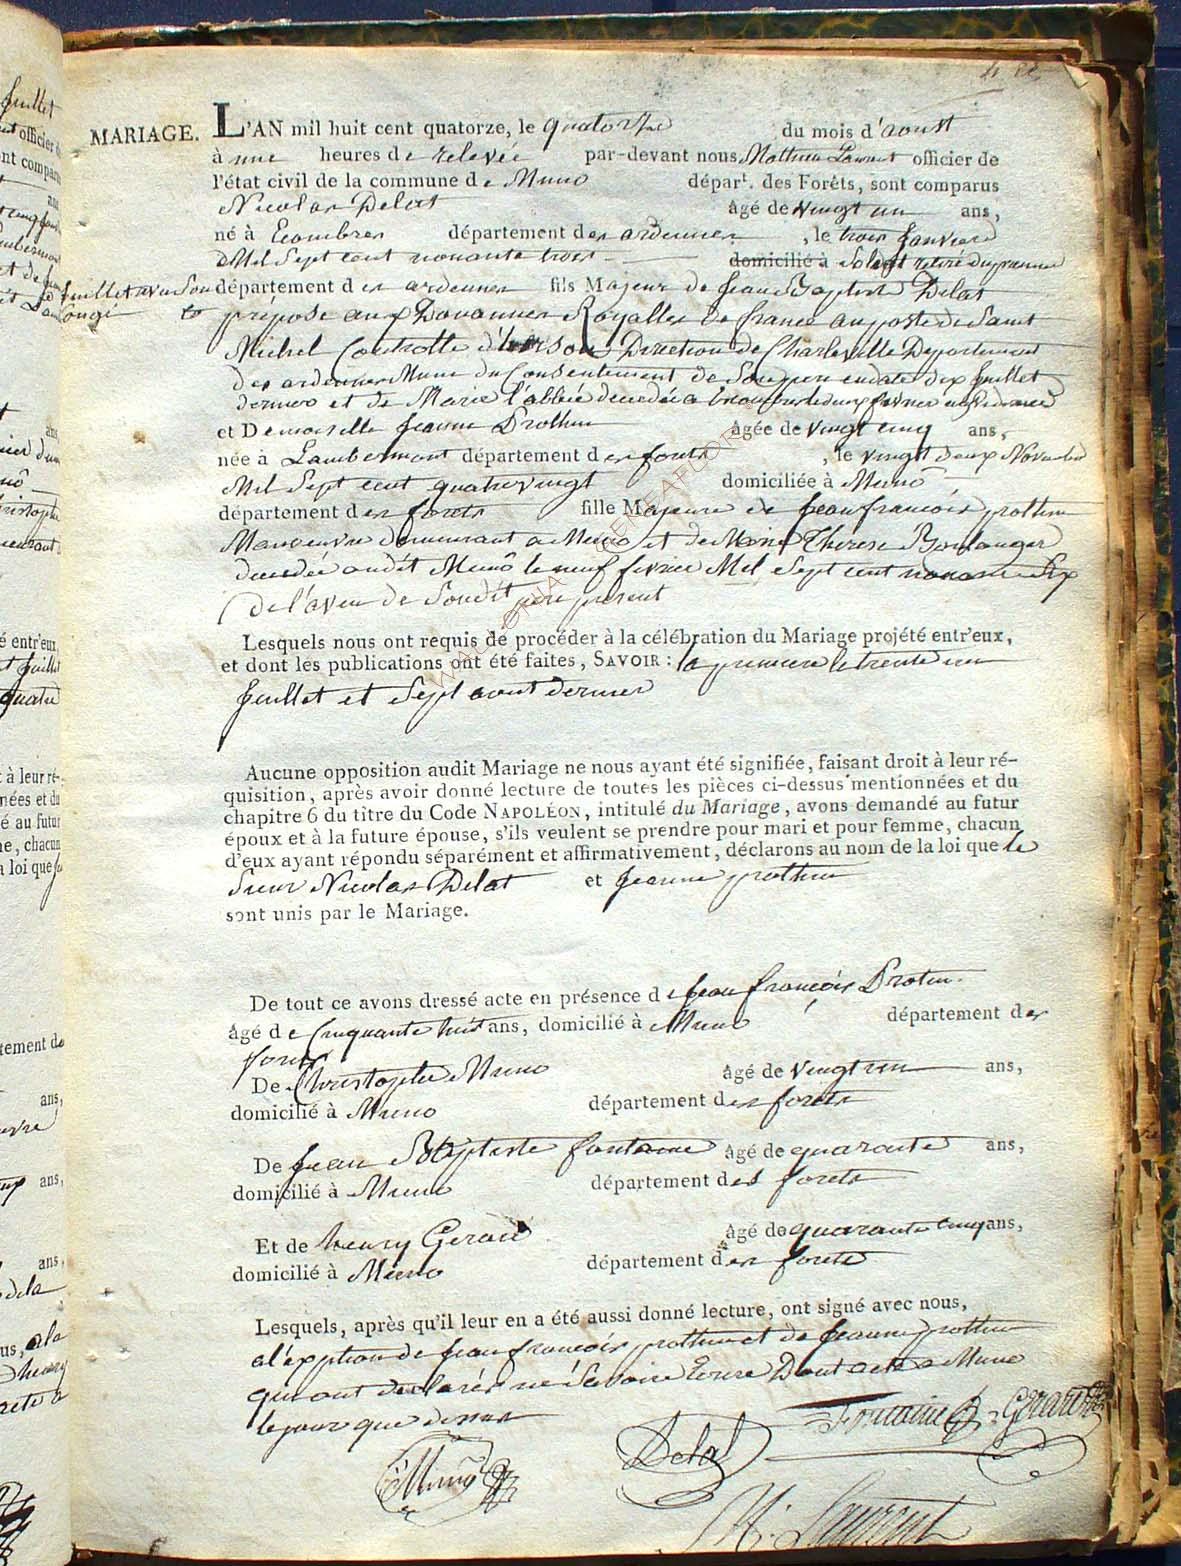 MARIAGE. L'AN mil huit cent quatorze, le quatorze du mois d'aoust
à une heures de relevée par-devant nous Mathieu Laurent officier de
l'état civil de la commune de Muno départ. des Forêts, sont comparus
Nicolas Delat âgé de vingt un ans,
né à Ecombres département des ardennes, le trois Janvier
Mil Sept cent nonante trois domicilié à Soldat retiré
département des ardennes fils Majeur de Jean Baptiste Delat
préposé aux Douannes Royalles de france au poste de Saint
Michel Controlle d'hirson Direction de Charleville Departement
des ardennes Muni du Consentement de Son pere en date dix Juillet
dernier et de Marie l'abbée decedée a
et Demoiselle Jeanne Prothin âgée de vingt cinq ans,
née à Lambermont département des forets, le vingt deux Novembre
Mil Sept cent quatrevingt domiciliée à Muno
département des forets fille Majeure de Jean françois prothin
Manoeuvre demeurant a Muno et de Marie Therese Boulanger
decedée audit Muno le neuf fevrier Mil Sept cent nonante Six
de l'aveu de Soudit pere present
Lesquels nous ont requis de procéder à la célébration du Mariage projété entr'eux,
et dont les publications ont été faites, SAVOIR : la premiere le trente un
Juillet et Sept aout dernier
Aucune opposition audit Mariage ne nous ayant été signifiée, faisant droit à leur ré-
quisition, après avoir donné lecture de toutes les pièces ci-dessus mentionnées et du
chapitre 6 du titre du Code NAPOLÉON, intitulé du Mariage, avons demandé au futur
époux et à la future épouse, s'ils veulent se prendre pour mari et pour femme, chacun
d'eux ayant répondu séparément et affirmativement, déclarons au nom de la loi que le
Sieur Nicolas Delat et Jeanne prothin
sont unis par le Mariage.
De tout ce avons dressé acte en présence de Jean françois Protin.
âgé de Cinquante huit ans, domicilié à Muno département des
forets
De Christophe Muno âgé de vingt un ans,
domicilié à Muno département des forets
De Jean Baptiste fontaine âgé de quarante ans,
domicilié à Muno département des forets
Et de henry Gerard âgé de quarante cinq ans,
domicilié à Muno département des forets
Lesquels, après qu'il leur en a été aussi donné lecture, ont signé avec nous,
a l'exption de Jean françois prothin et de Jeanne prothin
qui ont declarés ne Savoire Ecrire Dont acte a Muno
le jour que dessus
Fontaine Gerard
Muno Delat
M. Laurent